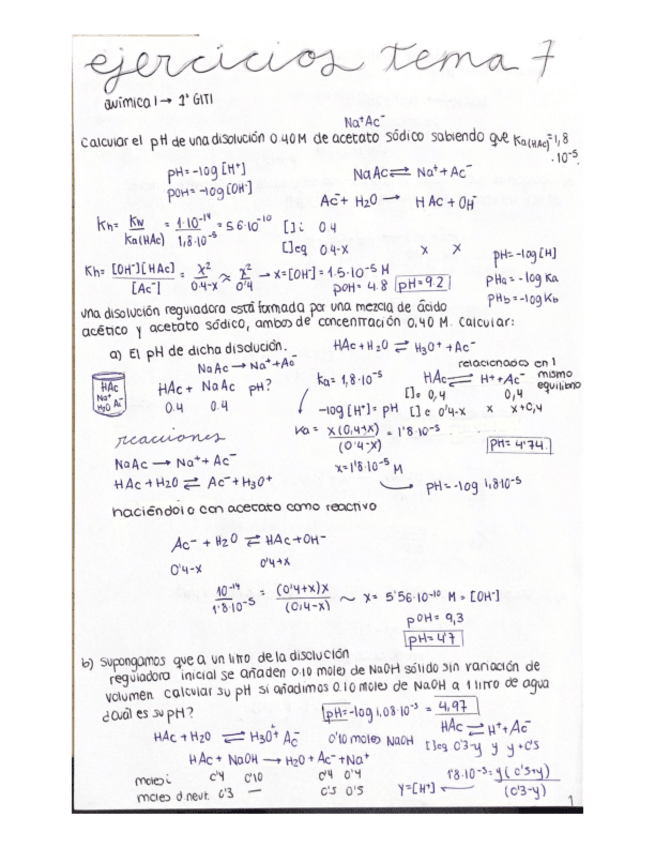 ejercicios tema 7
Química I → 1º GITI
Na⁺Ac⁻
Calcular el pH de una disolución 0.40M de acetato sódico sabiendo que Ka(HAc)=1,8
·10⁻⁵.
pH=-log[H⁺]
pOH=-log[OH⁻]
NaAc⇌ Na⁺+Ac⁻
Ac⁻+ H2O → HAc+OH⁻
Kh= Kw/Ka(HAc) = 1·10⁻¹⁴/1,8·10⁻⁵ = 5.6·10⁻¹⁰
[]i 0.4
[]eq 0.4-x x x
Kh= [OH⁻][HAc]/[Ac⁻] = x²/0.4-x ≈ x²/0'4 → x=[OH⁻]=1.5·10⁻⁵ M
pOH= 4.8 pH=9.2
pH=-log[H]
pHa=-log Ka
pHb=-logKb
una disolución reguladora está formada por una mezcla de ácido
acético y acetato sódico, ambos de concentración 0,40 M. Calcular:
a) El pH de dicha disolución.
HAc+H2O ⇌ H3O⁺ + Ac⁻
NaAc → Na⁺+Ac⁻
HAc
Na⁺
H2O Ac⁻
HAc + NaAc pH?
0.4 0.4
Ka=1,8·10⁻⁵
relacionados en 1
mismo
equilibrio
HAc⇌ H⁺+Ac⁻
[]o 0,4 0,4
-log[H⁺]=pH
[]e 0'4-x x x+0,4
Ka= x(0,4+x)/(0'4-x) = 1'8·10⁻⁵
pH=4'74
x=1'8·10⁻⁵ M
→ pH=-log 1,8·10⁻⁵
reacciones
NaAc → Na⁺+Ac⁻
HAc+H2O ⇌ Ac⁻+H3O⁺
haciéndolo con acetato como reactivo
Ac⁻ + H2O ⇌ HAc+OH⁻
0'4-x 0'4+x
10⁻¹⁴/1'8·10⁻⁵ = (0'4+x)x/(0,4-x) ~ x= 5'56·10⁻¹⁰ M=[OH⁻]
pOH=9,3
pH=4'7
b) Supongamos que a un litro de la disolución
reguladora inicial se añaden 0.10 moles de NaOH sólido sin variación de
volumen. calcular su pH si añadimos 0.10 moles de NaOH a 1 litro de agua
¿Cuál es su pH?
pH=-log 1,08·10⁻⁵ = 4,97
HAc+H2O ⇌ H3O⁺+Ac⁻
0'10 moles NaOH
HAc ⇌ H⁺+Ac⁻
[]eq 0'3-y y y+0'5
HAc + NaOH → H2O+Ac⁻+Na⁺
moles i 0'4 0'10 0'4 0'4
moles d.neut. 0'3 — 0'5 0'5
1'8·10⁻⁵= y(0'5+y)/(0'3-y)
y=[H⁺] ←
1